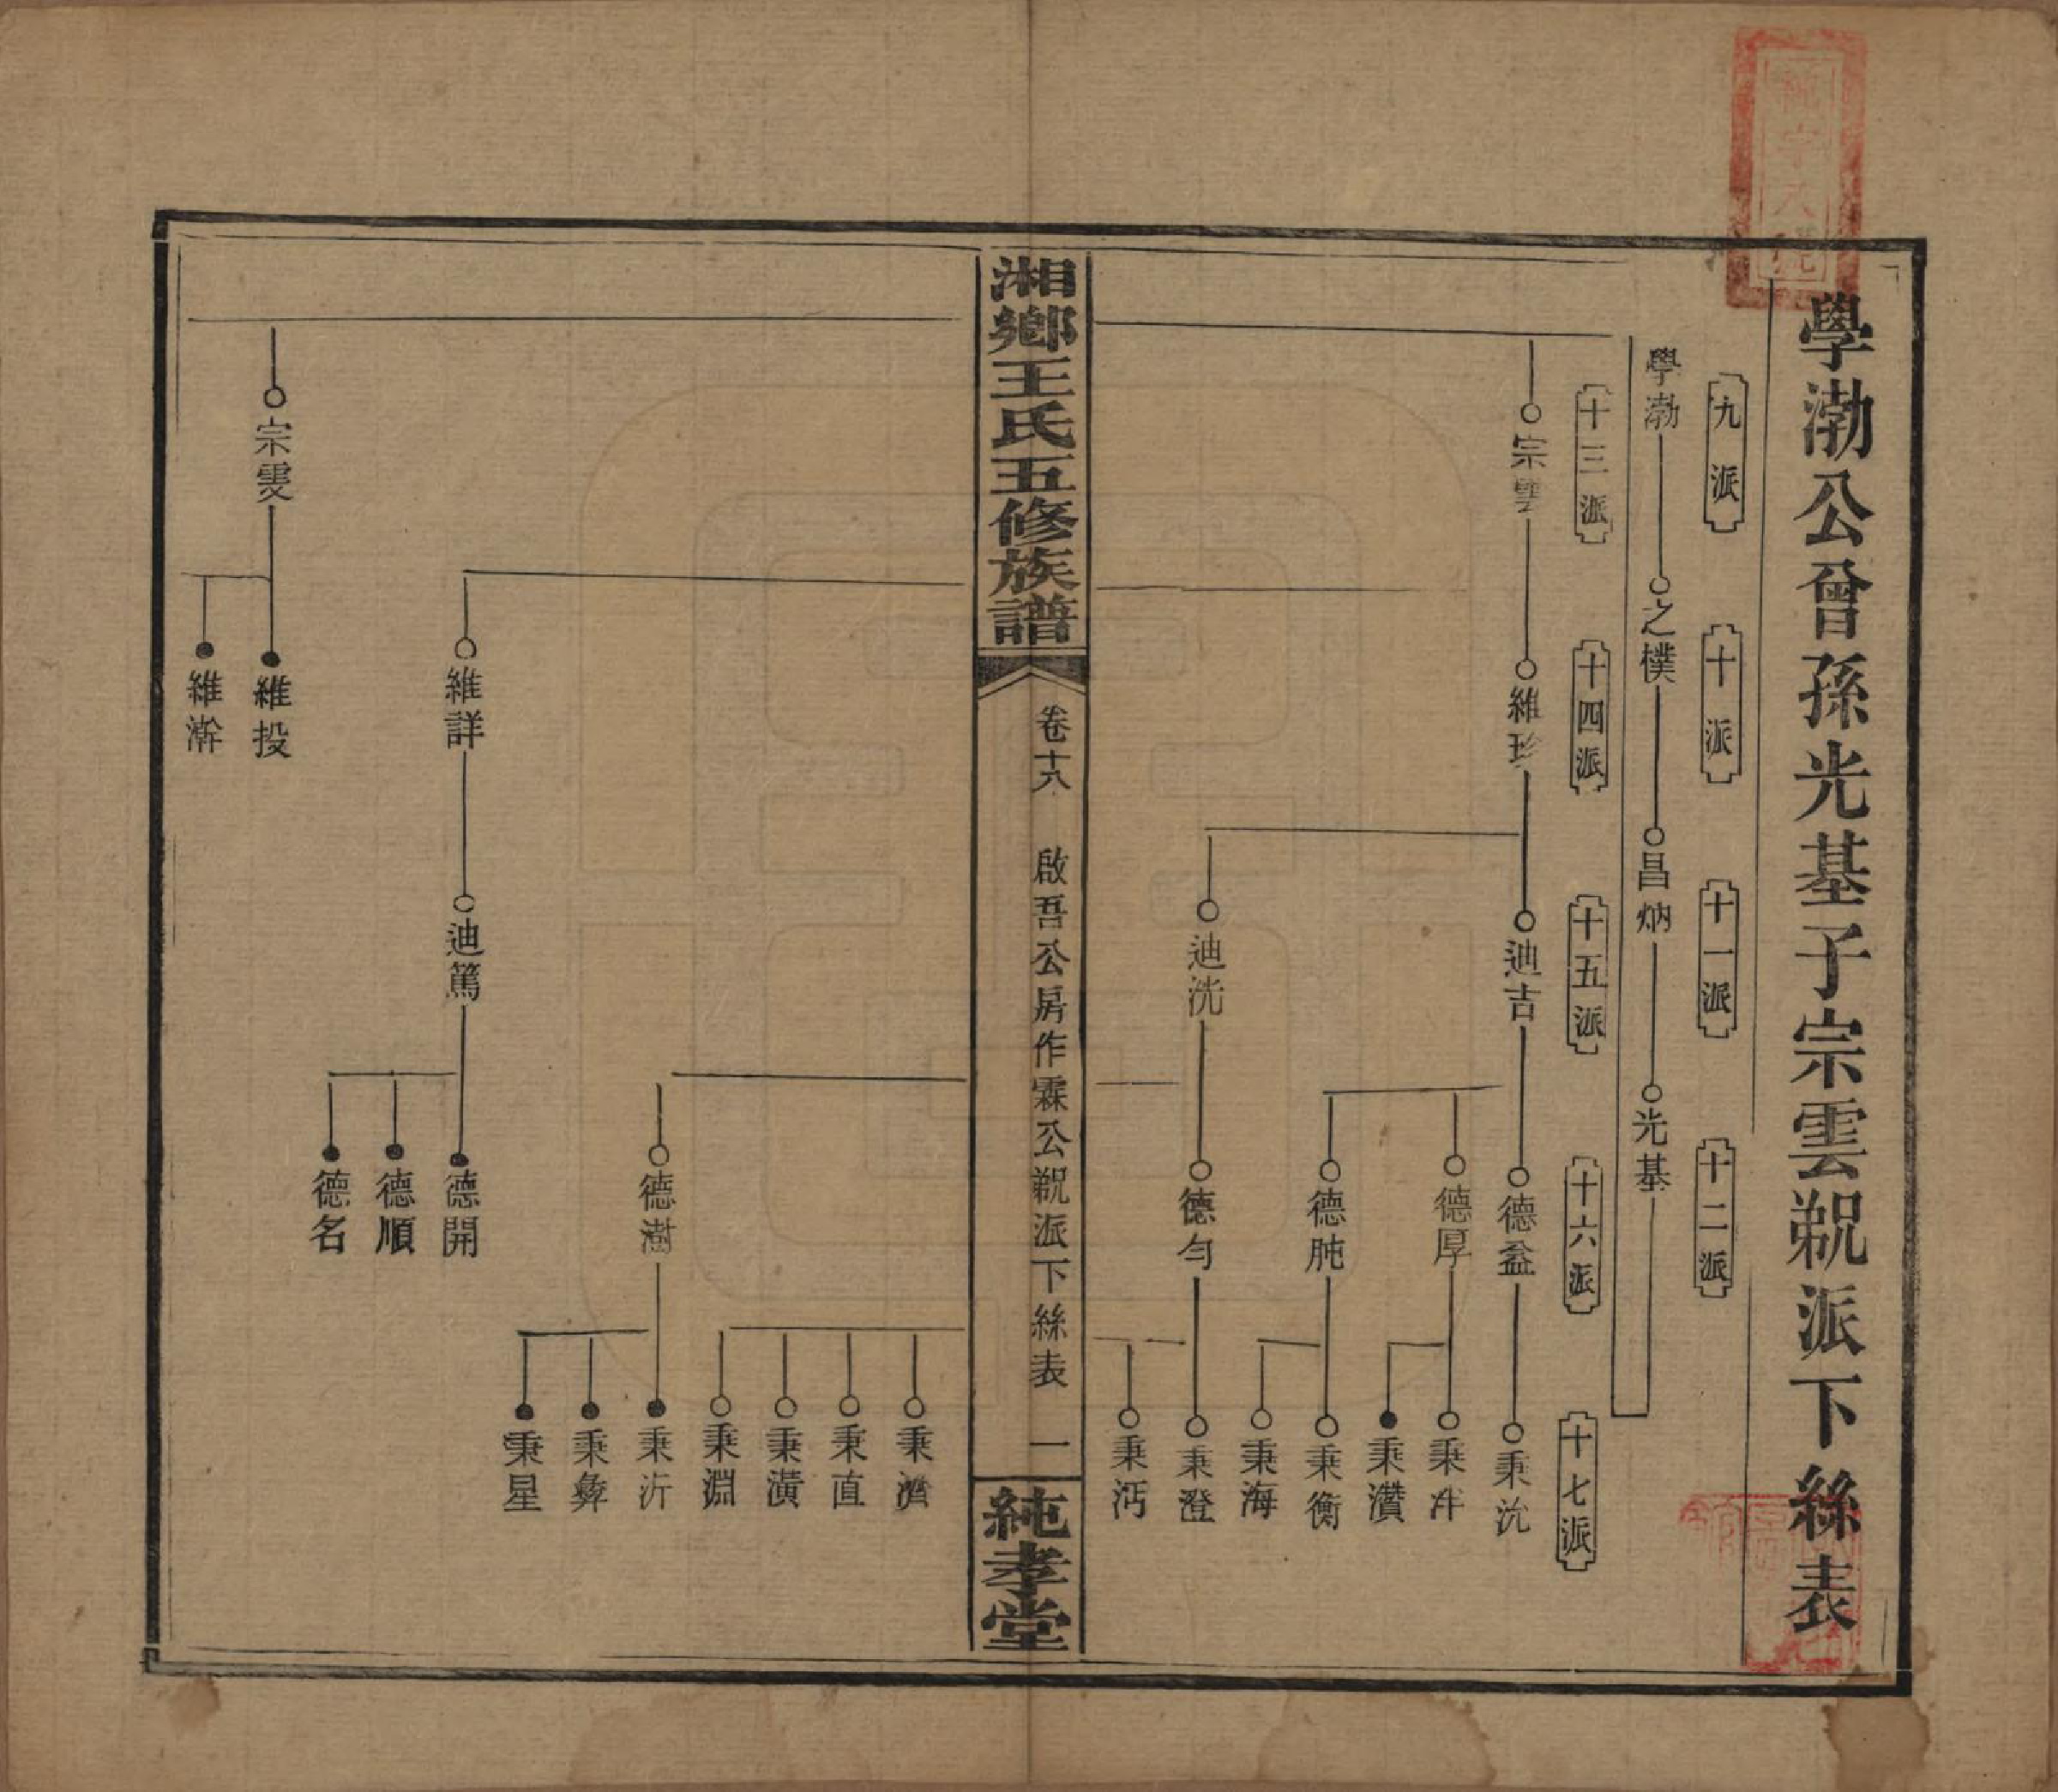 學渤公曾孫光基子宗雲覡派下絲表
九派
十派
十一派
十二派
學渤
之樸
昌炳
光基
十三派
十四派
十五派
十六派
十七派
宗雲
維珍
迪吉
德盈
秉沇
德厚
秉汼
秉瓚
德肫
秉衡
秉海
迪洗
德勻
秉澄
秉沔
湘鄉王氏五修族譜
卷十八
啟吾公房作霖公覡派下絲表
一
純孝堂
秉濟
秉直
秉潢
秉淵
德澍
秉沂
秉彝
秉星
維詳
迪篤
德開
德順
德名
宗雯
維投
維澣